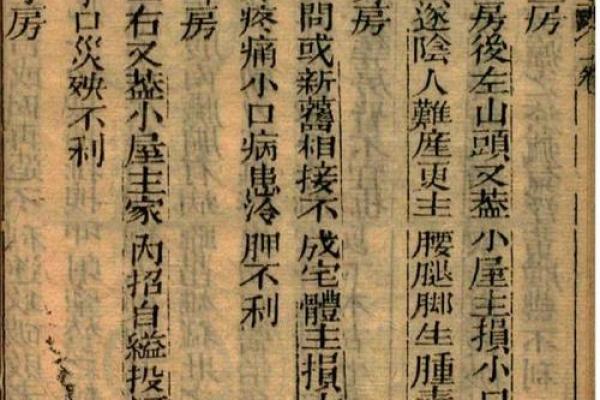 一卷
房
房後左山頭又葢小屋主損小口
遂陰人難産更主腰腿脚生腫毒
房
問或新舊相接不成宅體主損
疼痛小口病患冷胛不利
房
右又葢小屋主家內招自縊投
口災殃不利
房